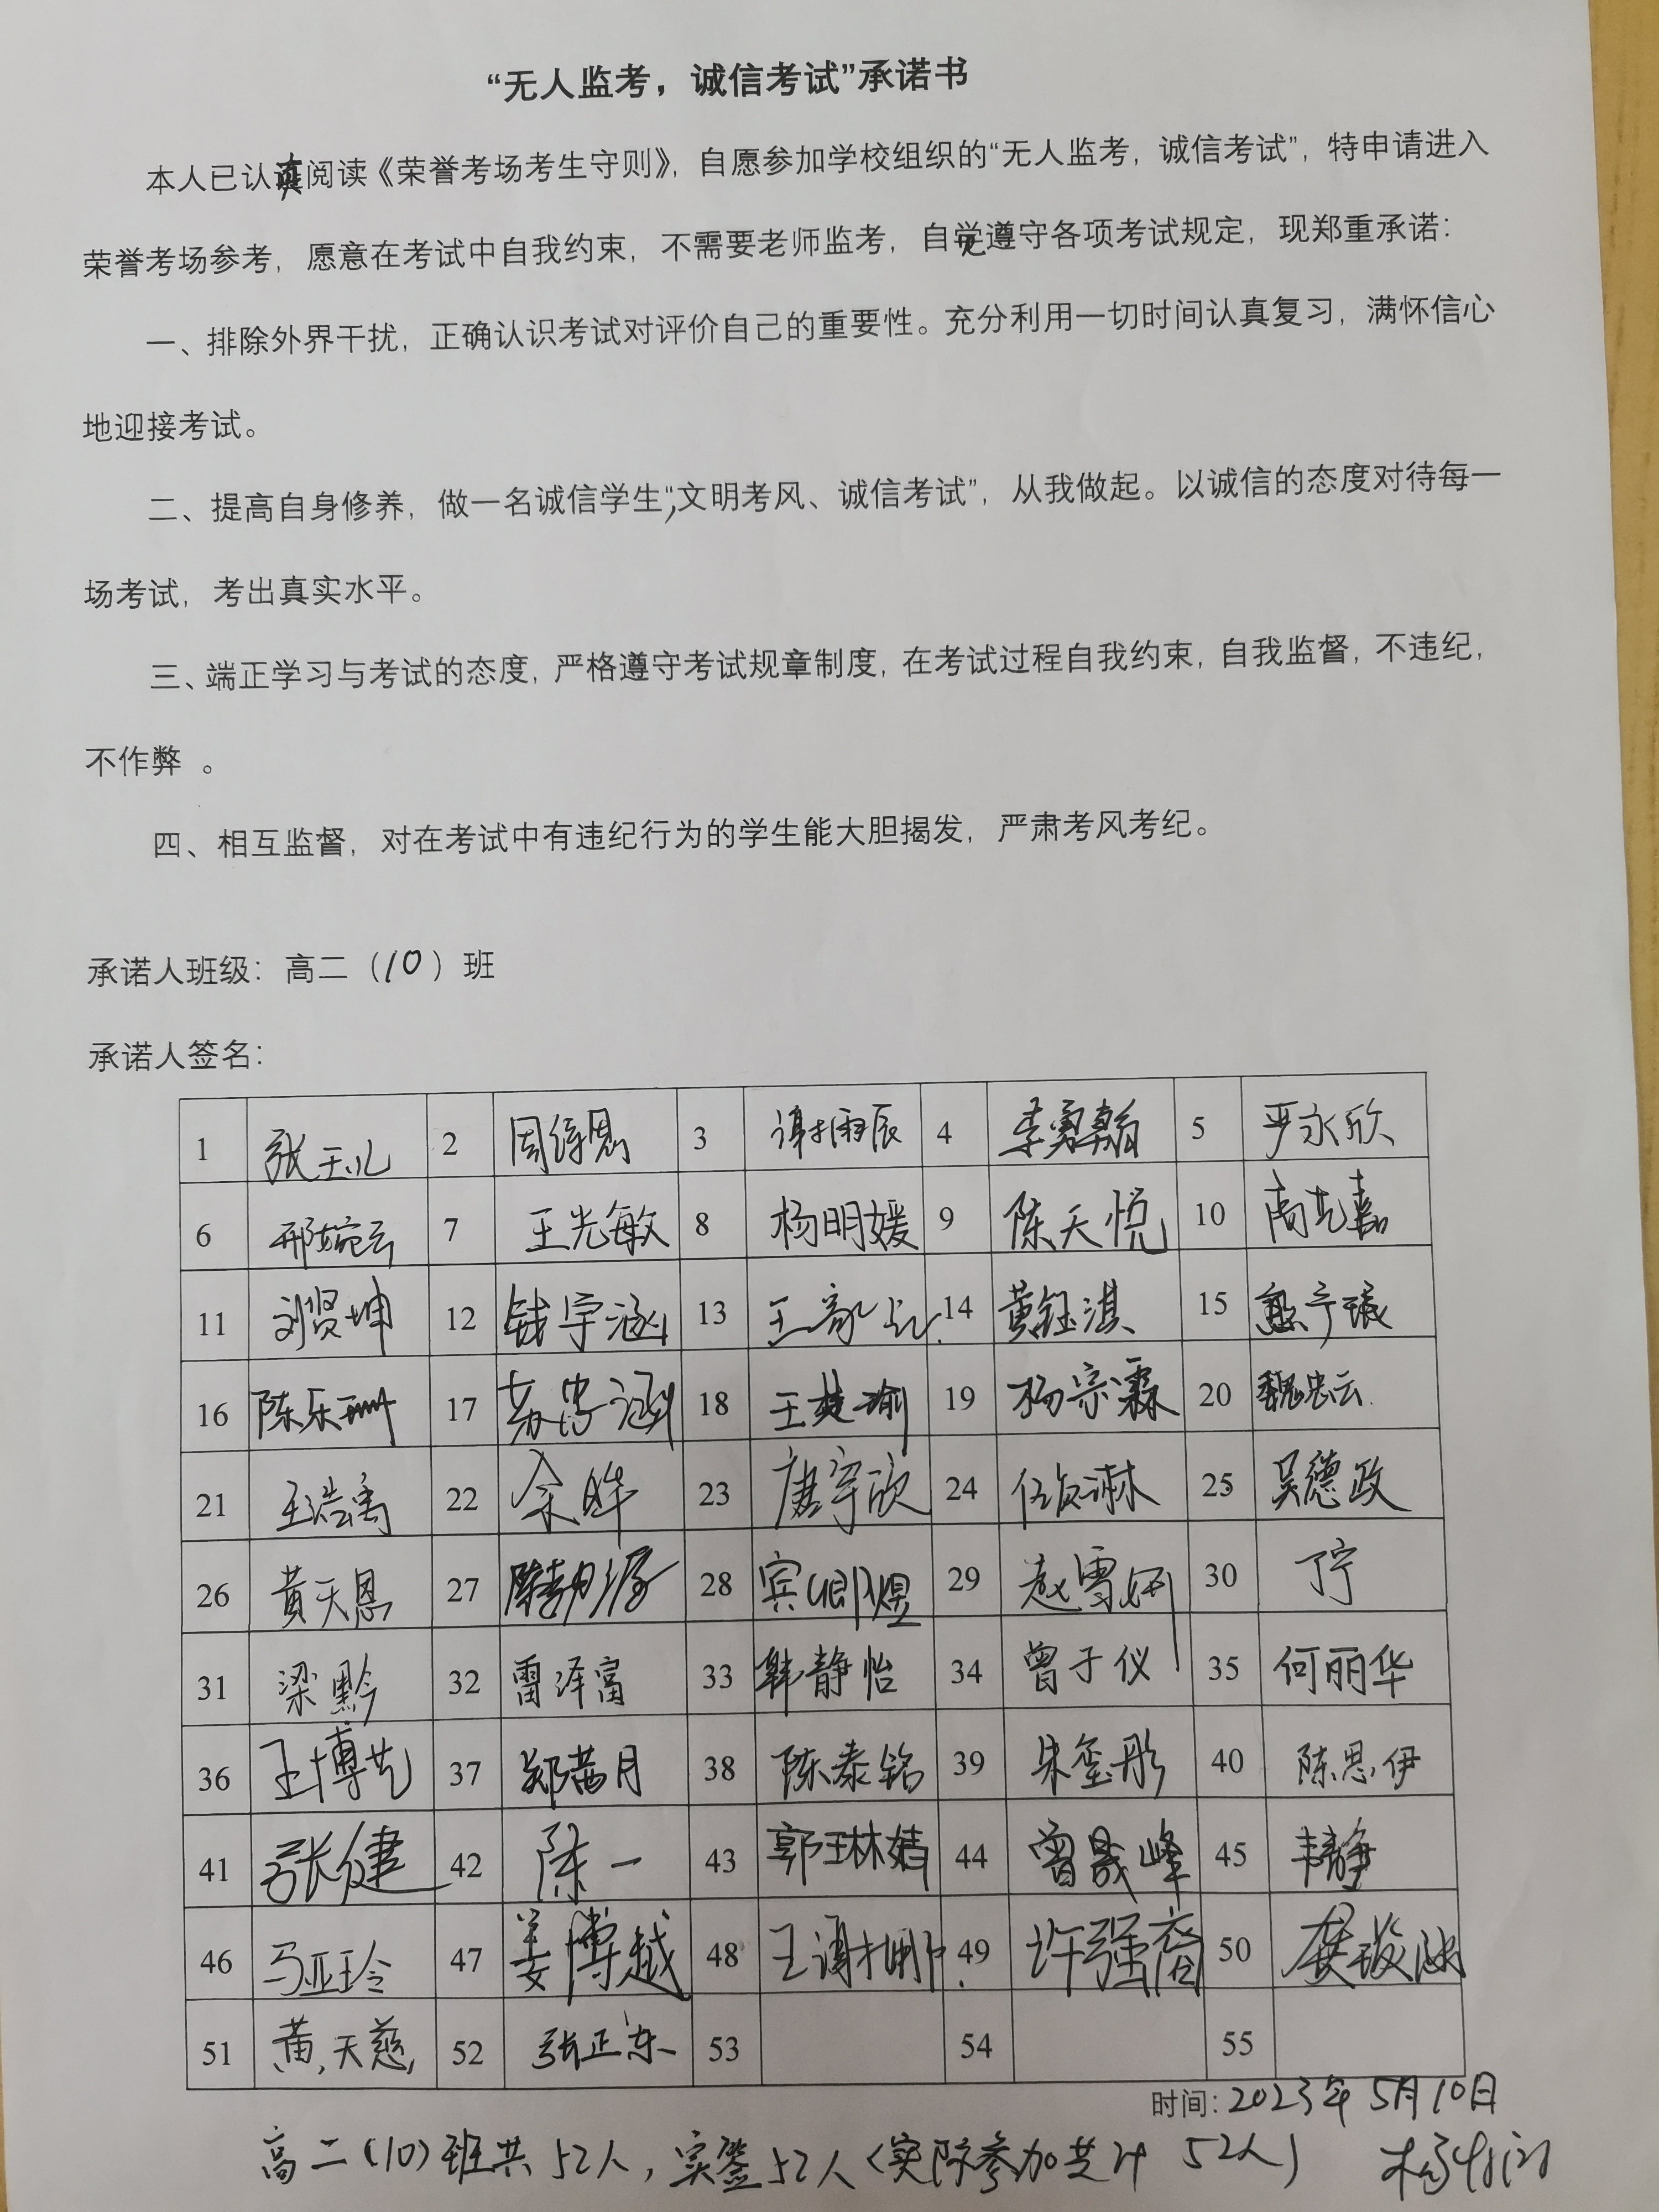 “无人监考，诚信考试”承诺书
本人已认真阅读《荣誉考场考生守则》，自愿参加学校组织的“无人监考，诚信考试”，特申请进入
荣誉考场参考，愿意在考试中自我约束，不需要老师监考，自觉遵守各项考试规定，现郑重承诺：
一、排除外界干扰，正确认识考试对评价自己的重要性。充分利用一切时间认真复习，满怀信心
地迎接考试。
二、提高自身修养，做一名诚信学生，“文明考风、诚信考试”，从我做起。以诚信的态度对待每一
场考试，考出真实水平。
三、端正学习与考试的态度，严格遵守考试规章制度，在考试过程自我约束，自我监督，不违纪，
不作弊 。
四、相互监督，对在考试中有违纪行为的学生能大胆揭发，严肃考风考纪。
承诺人班级：高二（10）班
承诺人签名：
1 张 2 周 3 谢 辰 4 李勇翰 5 严永欣
6 邢婉云 7 王光敏 8 杨明媛 9 陈天悦 10
11 刘贤坤 12 钱宇涵 13 王 14 黄钰淇 15
16 陈乐珊 17 涵 18 王楚瑜 19 杨宗霖 20 魏忠云
21 王浩禹 22 余 23 唐宇欣 24 任 25 吴德政
26 黄天恩 27 陈 28 宾 煜 29 赵雪妍 30 丁宁
31 梁黔 32 雷泽富 33 韩静怡 34 曾子仪 35 何丽华
36 王博艺 37 郑茜月 38 陈泰铭 39 朱玺彤 40 陈思伊
41 张健 42 陈一 43 郭王林婧 44 曾晟峰 45 韦静
46 马亚玲 47 姜博越 48 王谢 49 许强裔 50 龚
51 黄天慈 52 张正东 53 54 55
时间：2023年5月10日
高二(10)班共52人，实签52人(实际参加共计 52人) 杨